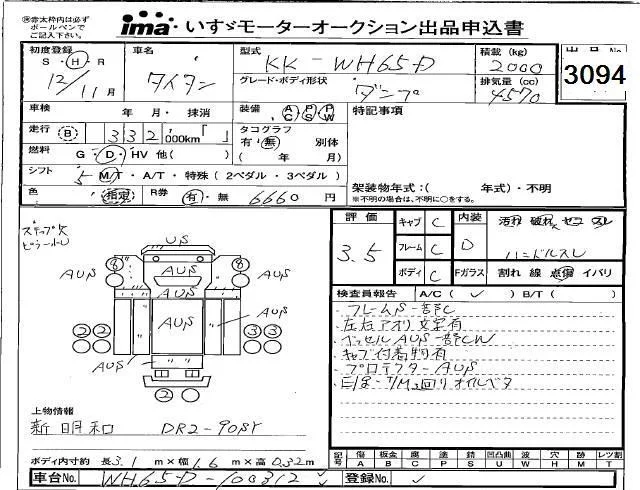 ※赤太枠内は必ずボールペンでご記入下さい。
ima いすゞモーターオークション出品申込書
初度登録 S・H・R 12/11月
車名 タイタン
型式 KK-WH65D
積載(kg) 2000
出品No. 3094
グレード・ボディ形状 ダンプ
排気量(cc) 4570
車検 年 月・抹消
装備 AC PS PW
特記事項
走行 B 332,000km「 」
タコグラフ 有・無 別体 ( 年 月)
燃料 G・D・HV 他( )
シフト 5 M/T・A/T・特殊(2ペダル・3ペダル)
架装物年式:( 年式)・不明
※不明の場合は、不明に○をする。
色 指定 R券 有・無 6660円
ステップ欠
US
8 AUS 8
AUS AUS AUS
AUS AUS AUS
2 2 3 3
AUS
2
評価 3.5
キャブ C
フレーム C
ボディ C
内装 D
汚れ 破れ セコ スレ
ハンドルスレ
Fガラス 割れ 線 点傷 イバリ
検査員報告 A/C(✓) B/T( )
・フレームS一部C
・左右アオリ文字有
・ベッセルAUS一部CW
・キャブ付着物有
・プロテクターAUS
・E/g・T/M3回りオイルベタ
上物情報
新明和 DR2-90SY
ボディ内寸約 長3.1m×幅1.6m×高0.32m
記号 傷A 板金B 腐C 塗P 錆S 凹凸曲U 波W 穴H 跡M レンズ割T
車台No. WH65D-100312
登録No. ✓